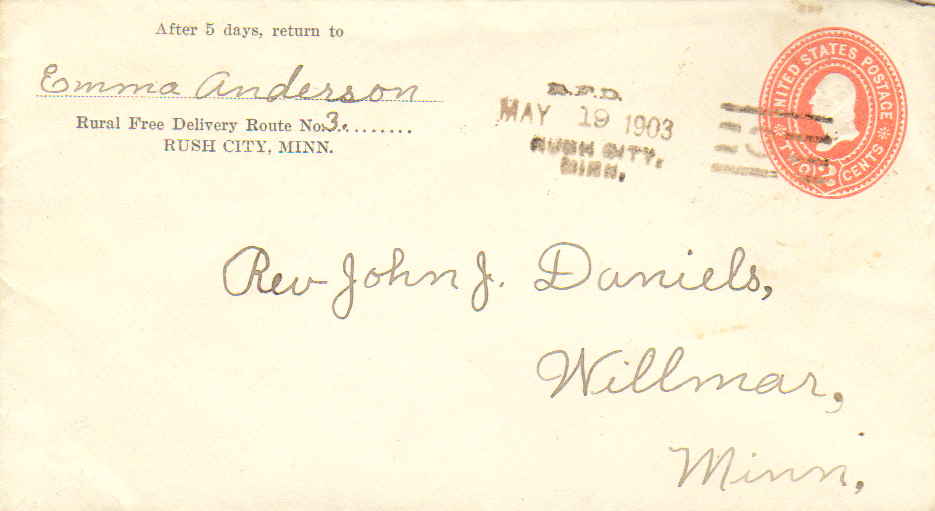 After 5 days, return to
Emma Anderson
Rural Free Delivery Route No. 3.
RUSH CITY, MINN.
R.F.D.
MAY 19 1903
RUSH CITY,
MINN.
UNITED STATES POSTAGE
TWO 2 CENTS
Rev John J. Daniels,
Willmar,
Minn,